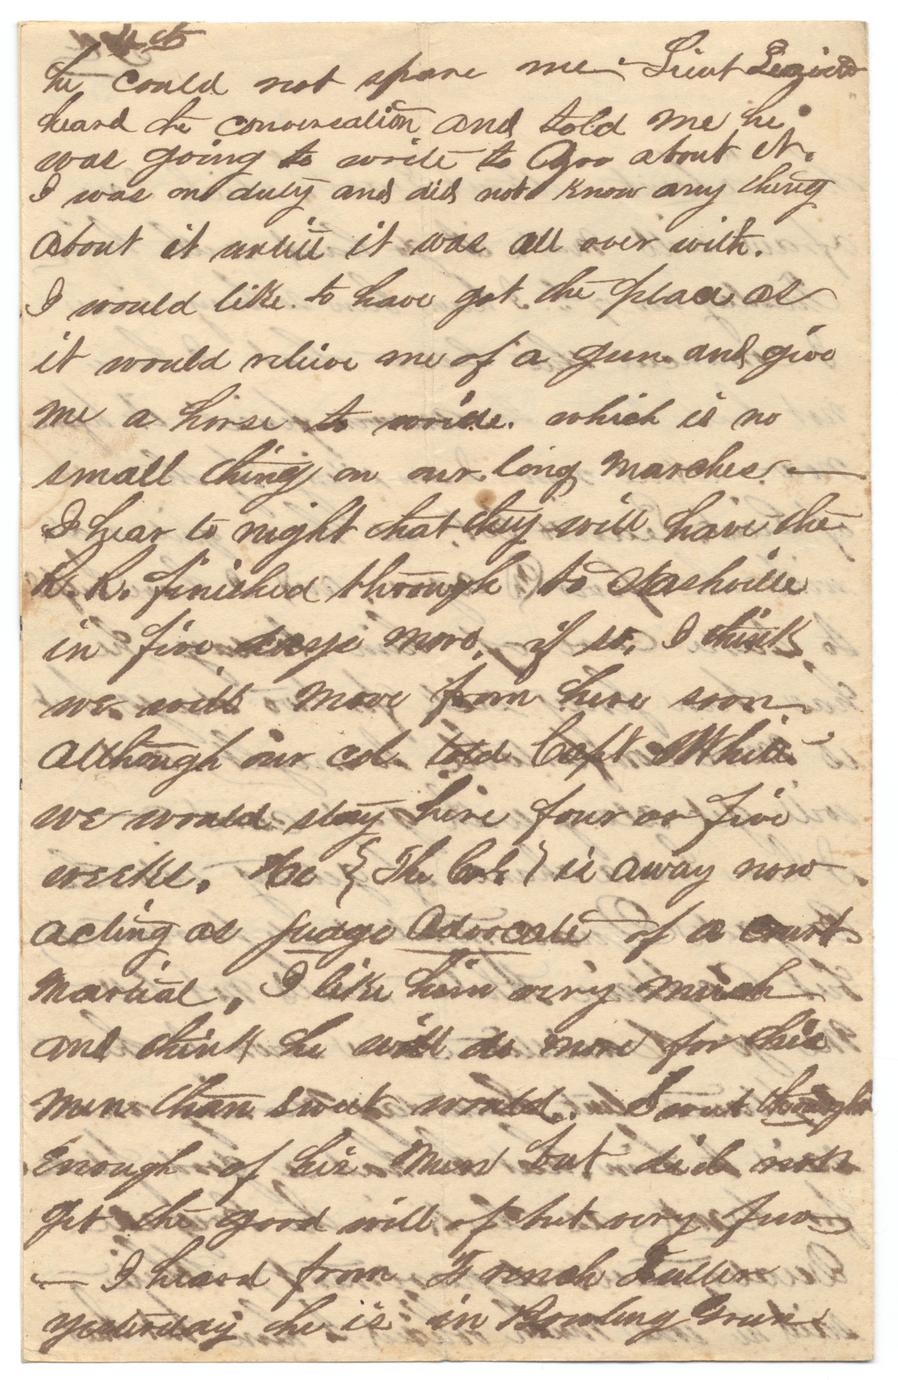 he could not spare me - Lieut
heard the conversation and told me he
was going to write to you about it.
I was on duty and did not know any thing
about it untill it was all over with.
I would like to have got the place as
it would relieve me of a gun and give
me a horse to wride. which is no
small thing on our long marches. —
I hear to night that they will have the
R. R. finished through to Nashville
in five days more, if so, I think
we will move from here soon
although our col. told Capt White
we would stay here four or five
weeks. He { The Col. } is away now
acting as judge advocate of a court
martial, I like him very much
and think he will do more for his
men than Swett would. Swett thought
enough of his men but did not
get the good will of but very few
— I heard from French Fuller
yesterday he is in Bowling Green